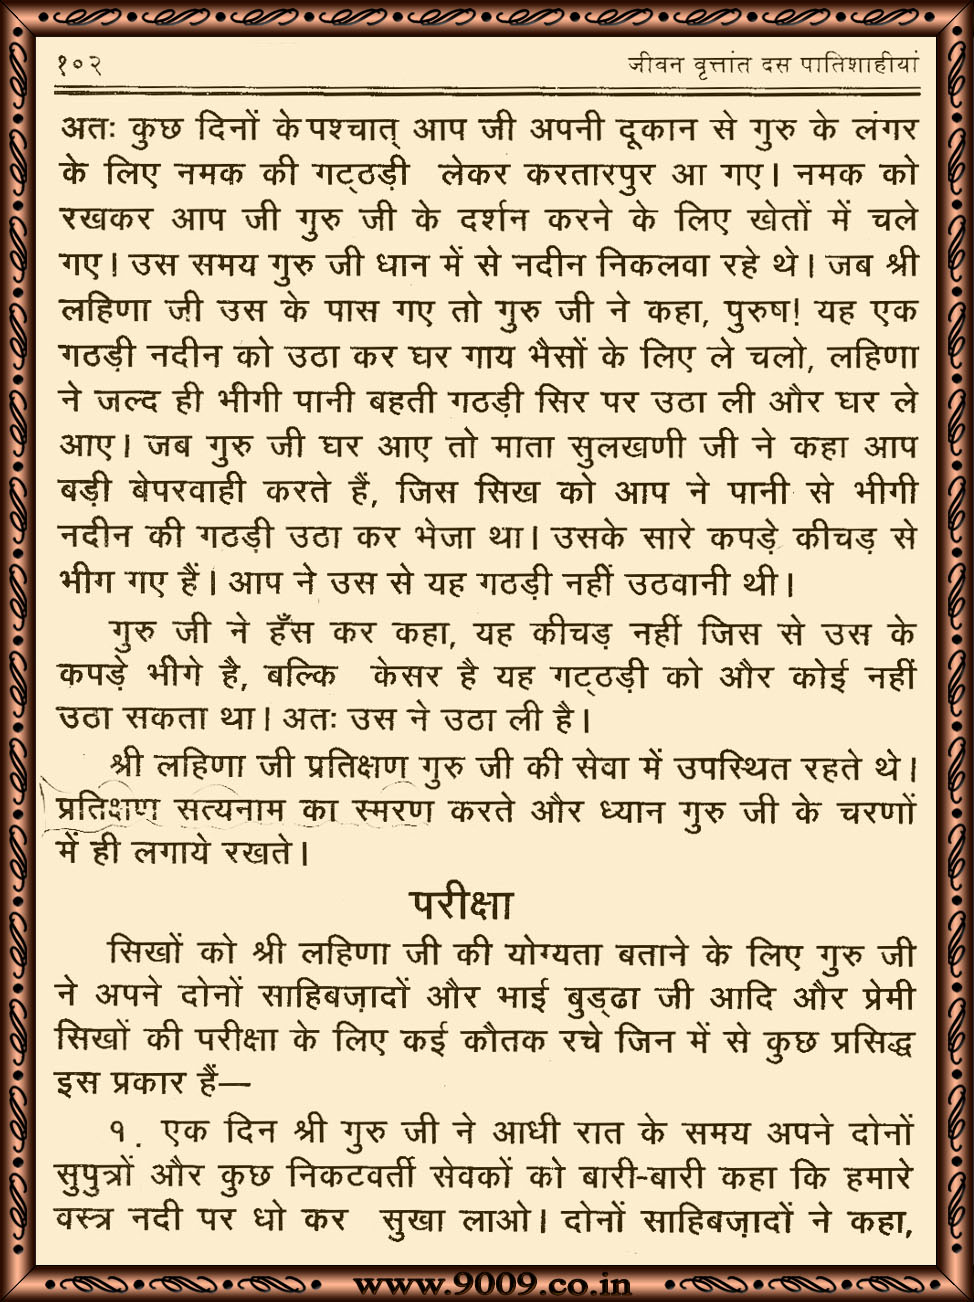 १०२ जीवन वृत्तांत दस पातिशाहीयां
अतः कुछ दिनों के पश्चात् आप जी अपनी दूकान से गुरु के लंगर
के लिए नमक की गट्ठड़ी लेकर करतारपुर आ गए। नमक को
रखकर आप जी गुरु जी के दर्शन करने के लिए खेतों में चले
गए। उस समय गुरु जी धान में से नदीन निकलवा रहे थे। जब श्री
लहिणा जी उस के पास गए तो गुरु जी ने कहा, पुरुष! यह एक
गठड़ी नदीन को उठा कर घर गाय भैसों के लिए ले चलो, लहिणा
ने जल्द ही भीगी पानी बहती गठड़ी सिर पर उठा ली और घर ले
आए। जब गुरु जी घर आए तो माता सुलखणी जी ने कहा आप
बड़ी बेपरवाही करते हैं, जिस सिख को आप ने पानी से भीगी
नदीन की गठड़ी उठा कर भेजा था। उसके सारे कपड़े कीचड़ से
भीग गए हैं। आप ने उस से यह गठड़ी नहीं उठवानी थी।
गुरु जी ने हँस कर कहा, यह कीचड़ नहीं जिस से उस के
कपड़े भीगे है, बल्कि केसर है यह गट्ठड़ी को और कोई नहीं
उठा सकता था। अतः उस ने उठा ली है।
श्री लहिणा जी प्रतिक्षण गुरु जी की सेवा में उपस्थित रहते थे।
प्रतिक्षण सत्यनाम का स्मरण करते और ध्यान गुरु जी के चरणों
में ही लगाये रखते।
परीक्षा
सिखों को श्री लहिणा जी की योग्यता बताने के लिए गुरु जी
ने अपने दोनों साहिबज़ादों और भाई बुड्ढा जी आदि और प्रेमी
सिखों की परीक्षा के लिए कई कौतक रचे जिन में से कुछ प्रसिद्ध
इस प्रकार हैं—
१. एक दिन श्री गुरु जी ने आधी रात के समय अपने दोनों
सुपुत्रों और कुछ निकटवर्ती सेवकों को बारी-बारी कहा कि हमारे
वस्त्र नदी पर धो कर सुखा लाओ। दोनों साहिबज़ादों ने कहा,
www.9009.co.in